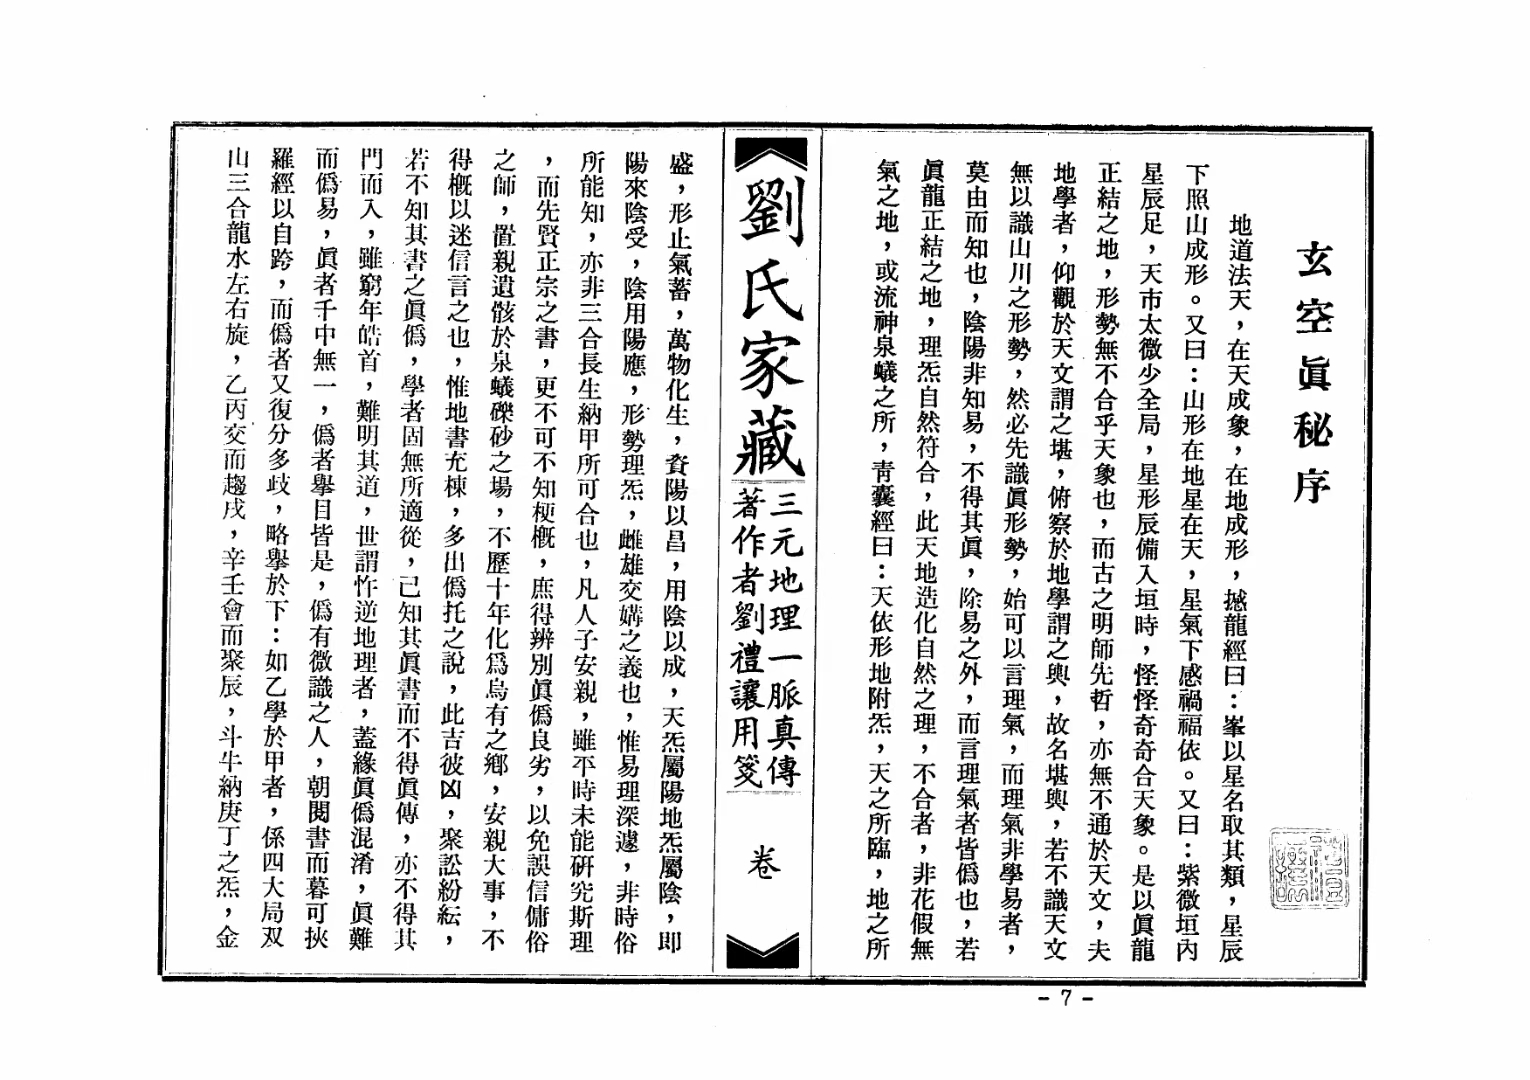 玄空眞秘序
地道法天，在天成象，在地成形，撼龍經曰：峯以星名取其類，星辰
下照山成形。又曰：山形在地星在天，星氣下感禍福依。又曰：紫微垣內
星辰足，天市太微少全局，星形辰備入垣時，怪怪奇奇合天象。是以眞龍
正結之地，形勢無不合乎天象也，而古之明師先哲，亦無不通於天文，夫
地學者，仰觀於天文謂之堪，俯察於地學謂之輿，故名堪輿，若不識天文
無以識山川之形勢，然必先識眞形勢，始可以言理氣，而理氣非學易者，
莫由而知也，陰陽非知易，不得其眞，除易之外，而言理氣者皆僞也，若
眞龍正結之地，理炁自然符合，此天地造化自然之理，不合者，非花假無
氣之地，或流神泉蟻之所，靑囊經曰：天依形地附炁，天之所臨，地之所
劉氏家藏
三元地理一脈真傳
著作者劉禮讓用箋
卷
盛，形止氣蓄，萬物化生，資陽以昌，用陰以成，天炁屬陽地炁屬陰，即
陽來陰受，陰用陽應，形勢理炁，雌雄交媾之義也，惟易理深邃，非時俗
所能知，亦非三合長生納甲所可合也，凡人子安親，雖平時未能硏究斯理
，而先賢正宗之書，更不可不知梗概，庶得辨別眞僞良劣，以免誤信傭俗
之師，置親遺骸於泉蟻礫砂之場，不歷十年化爲烏有之鄉，安親大事，不
得概以迷信言之也，惟地書充棟，多出僞托之說，此吉彼凶，聚訟紛紜，
若不知其書之眞僞，學者固無所適從，已知其眞書而不得眞傳，亦不得其
門而入，雖窮年皓首，難明其道，世謂忤逆地理者，蓋緣眞僞混淆，眞難
而僞易，眞者千中無一，僞者舉目皆是，僞有微識之人，朝閱書而暮可挾
羅經以自跨，而僞者又復分多歧，略舉於下：如乙學於甲者，係四大局双
山三合龍水左右旋，乙丙交而趨戌，辛壬會而聚辰，斗牛納庚丁之炁，金
- 7 -